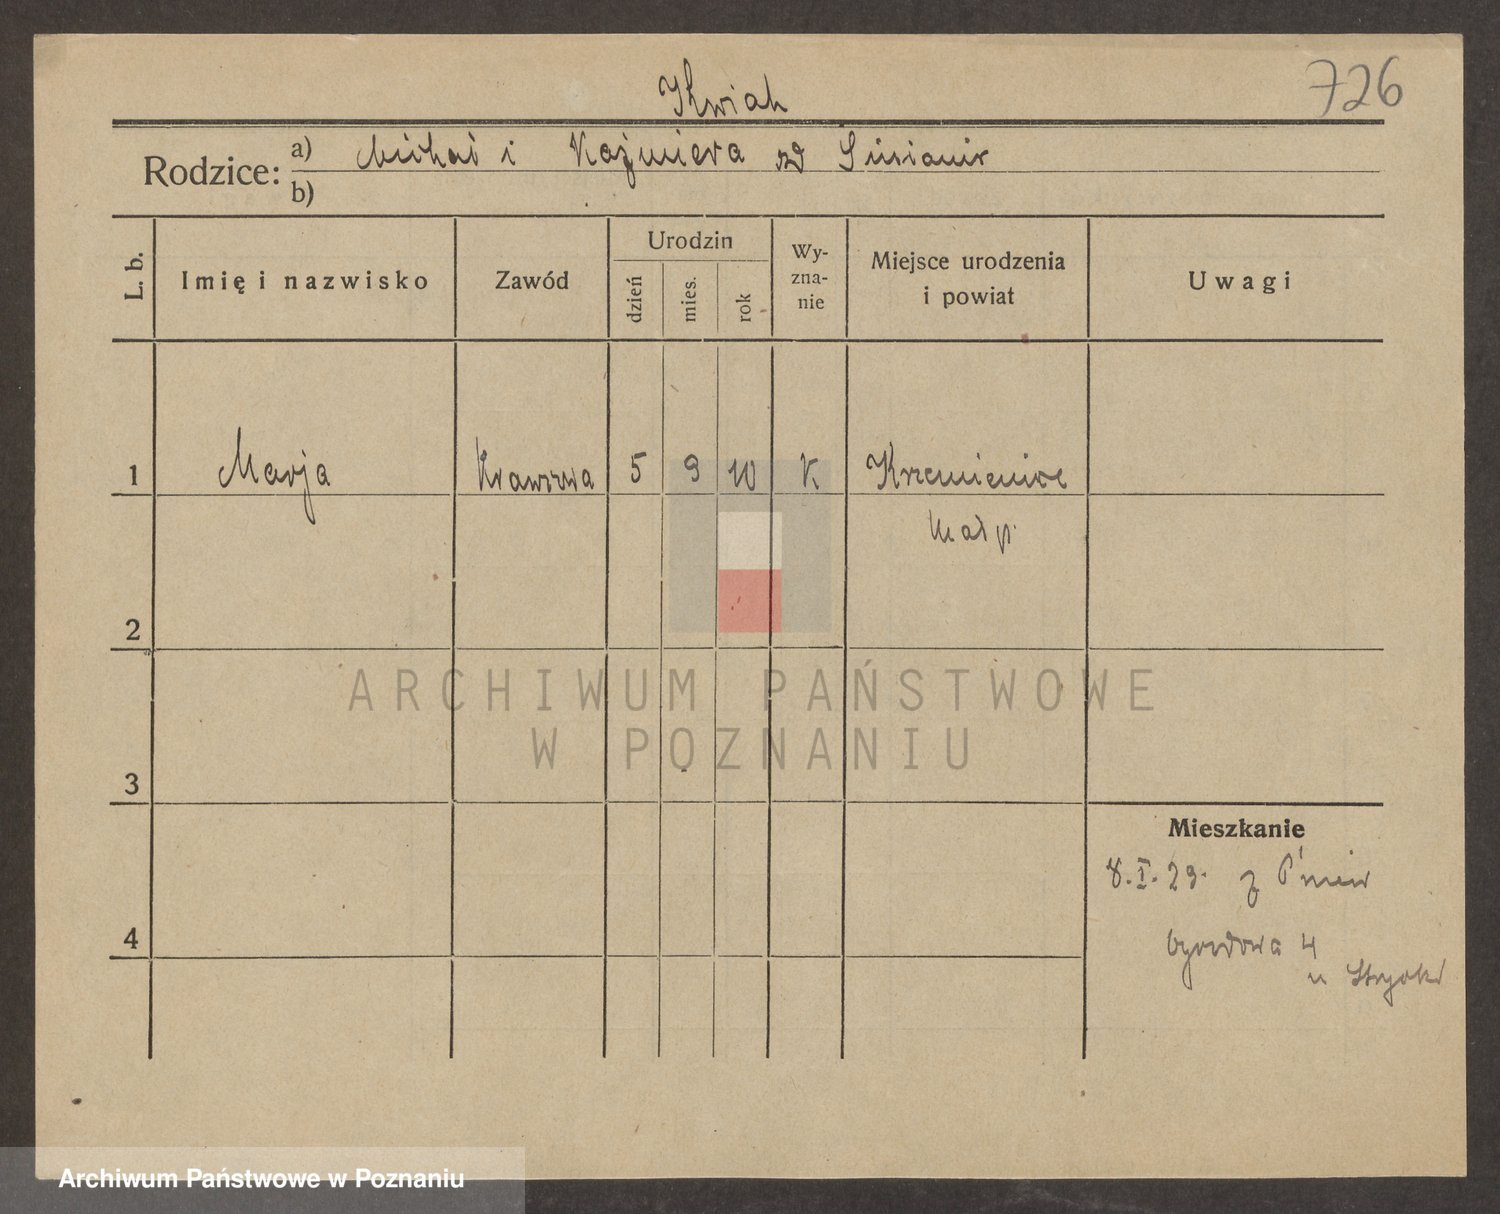 726
Kwiak
Rodzice: a) Michał i Kaźmiera zd
b)
L. b.
Imię i nazwisko
Zawód
Urodzin
dzień
mies.
rok
Wy-
zna-
nie
Miejsce urodzenia
i powiat
Uwagi
1 Marja Krawcowa 5 9 10 K Krzemienice
Małp.
2
3
4
Mieszkanie
8.I.29. z
Ogrodowa 4
u
ARCHIWUM PAŃSTWOWE
W POZNANIU
Archiwum Państwowe w Poznaniu